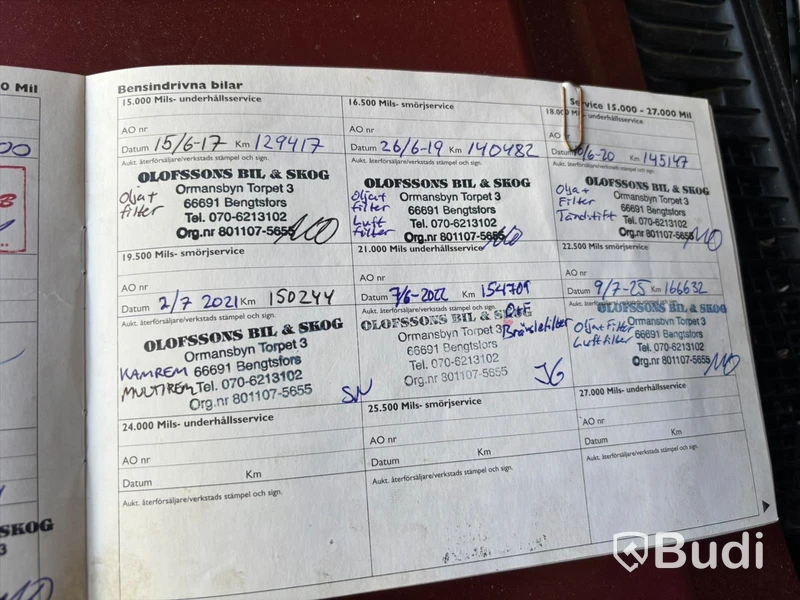 0 Mil
Bensindrivna bilar
Service 15.000 - 27.000 Mil
15.000 Mils- underhållsservice
AO nr
Datum 15/6-17 Km 129417
Aukt. återförsäljare/verkstads stämpel och sign.
Olja +
filter
OLOFSSONS BIL & SKOG
Ormansbyn Torpet 3
66691 Bengtsfors
Tel. 070-6213102
Org.nr 801107-5655
16.500 Mils- smörjservice
AO nr
Datum 26/6-19 Km 140482
Aukt. återförsäljare/verkstads stämpel och sign.
Olja +
filter
Luft
filter
OLOFSSONS BIL & SKOG
Ormansbyn Torpet 3
66691 Bengtsfors
Tel. 070-6213102
Org.nr 801107-5655
18.000 Mils- underhållsservice
AO nr
Datum 10/6-20 Km 145147
Aukt. återförsäljare/verkstads stämpel och sign.
Olja +
Filter
Tändstift
OLOFSSONS BIL & SKOG
Ormansbyn Torpet 3
66691 Bengtsfors
Tel. 070-6213102
Org.nr 801107-5655
19.500 Mils- smörjservice
AO nr
Datum 2/7 2021 Km 150244
Aukt. återförsäljare/verkstads stämpel och sign.
OLOFSSONS BIL & SKOG
Ormansbyn Torpet 3
KAMREM 66691 Bengtsfors
MULTIREM Tel. 070-6213102
Org.nr 801107-5655
SN
21.000 Mils- underhållsservice
AO nr
Datum 7/6-2022 Km 154709
Aukt. återförsäljare/verkstads stämpel och sign.
O+F
Bränslefilter
OLOFSSONS BIL & SKOG
Ormansbyn Torpet 3
66691 Bengtsfors
Tel. 070-6213102
Org.nr 801107-5655
JG
22.500 Mils- smörjservice
AO nr
Datum 9/7-25 Km 166632
Aukt. återförsäljare/verkstads stämpel och sign.
Olja+Filter
Luftfilter
OLOFSSONS BIL & SKOG
Ormansbyn Torpet 3
66691 Bengtsfors
Tel. 070-6213102
Org.nr 801107-5655
24.000 Mils- underhållsservice
AO nr
Datum Km
Aukt. återförsäljare/verkstads stämpel och sign.
25.500 Mils- smörjservice
AO nr
Datum Km
Aukt. återförsäljare/verkstads stämpel och sign.
27.000 Mils- underhållsservice
AO nr
Datum Km
Aukt. återförsäljare/verkstads stämpel och sign.
SKOG
3
Budi